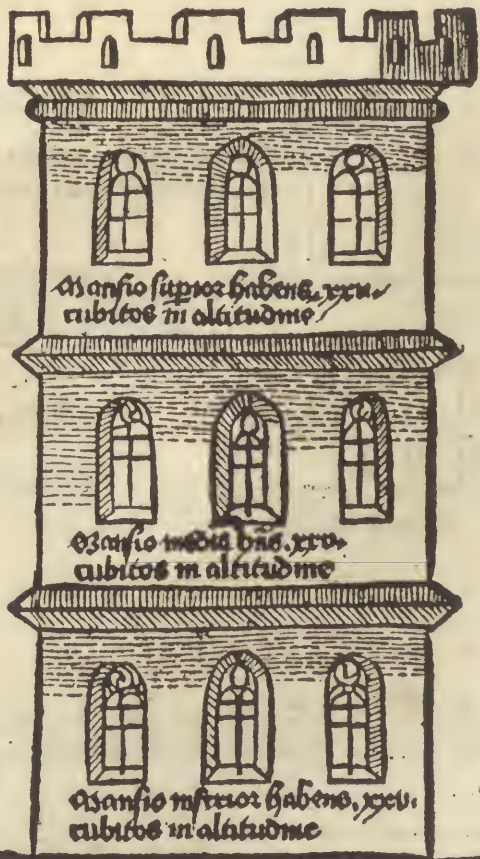 Mansio suꝑior habens .xxv.
cubitos in altitudine
Mansio media hn̄s .xxv.
cubitos in altitudine
Mansio inferior habens .xxv.
cubitos in altitudine